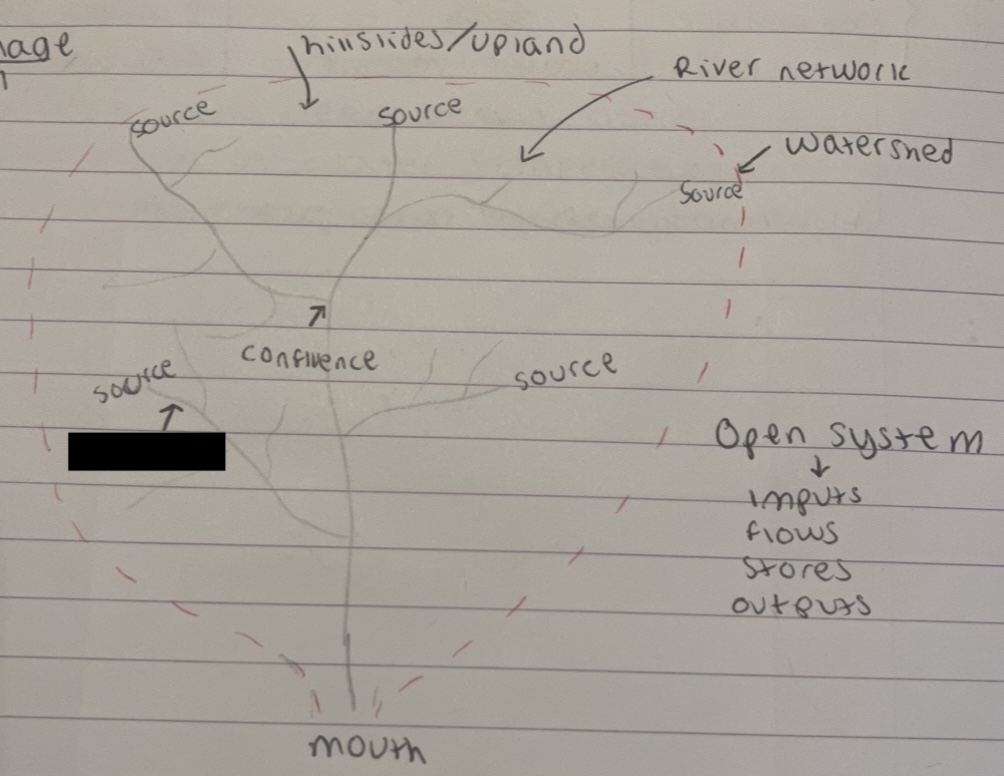 hillslides/upland
River network
source
source
watershed
source
confluence
source
source
Open system
↓
inputs
flows
stores
outputs
mouth